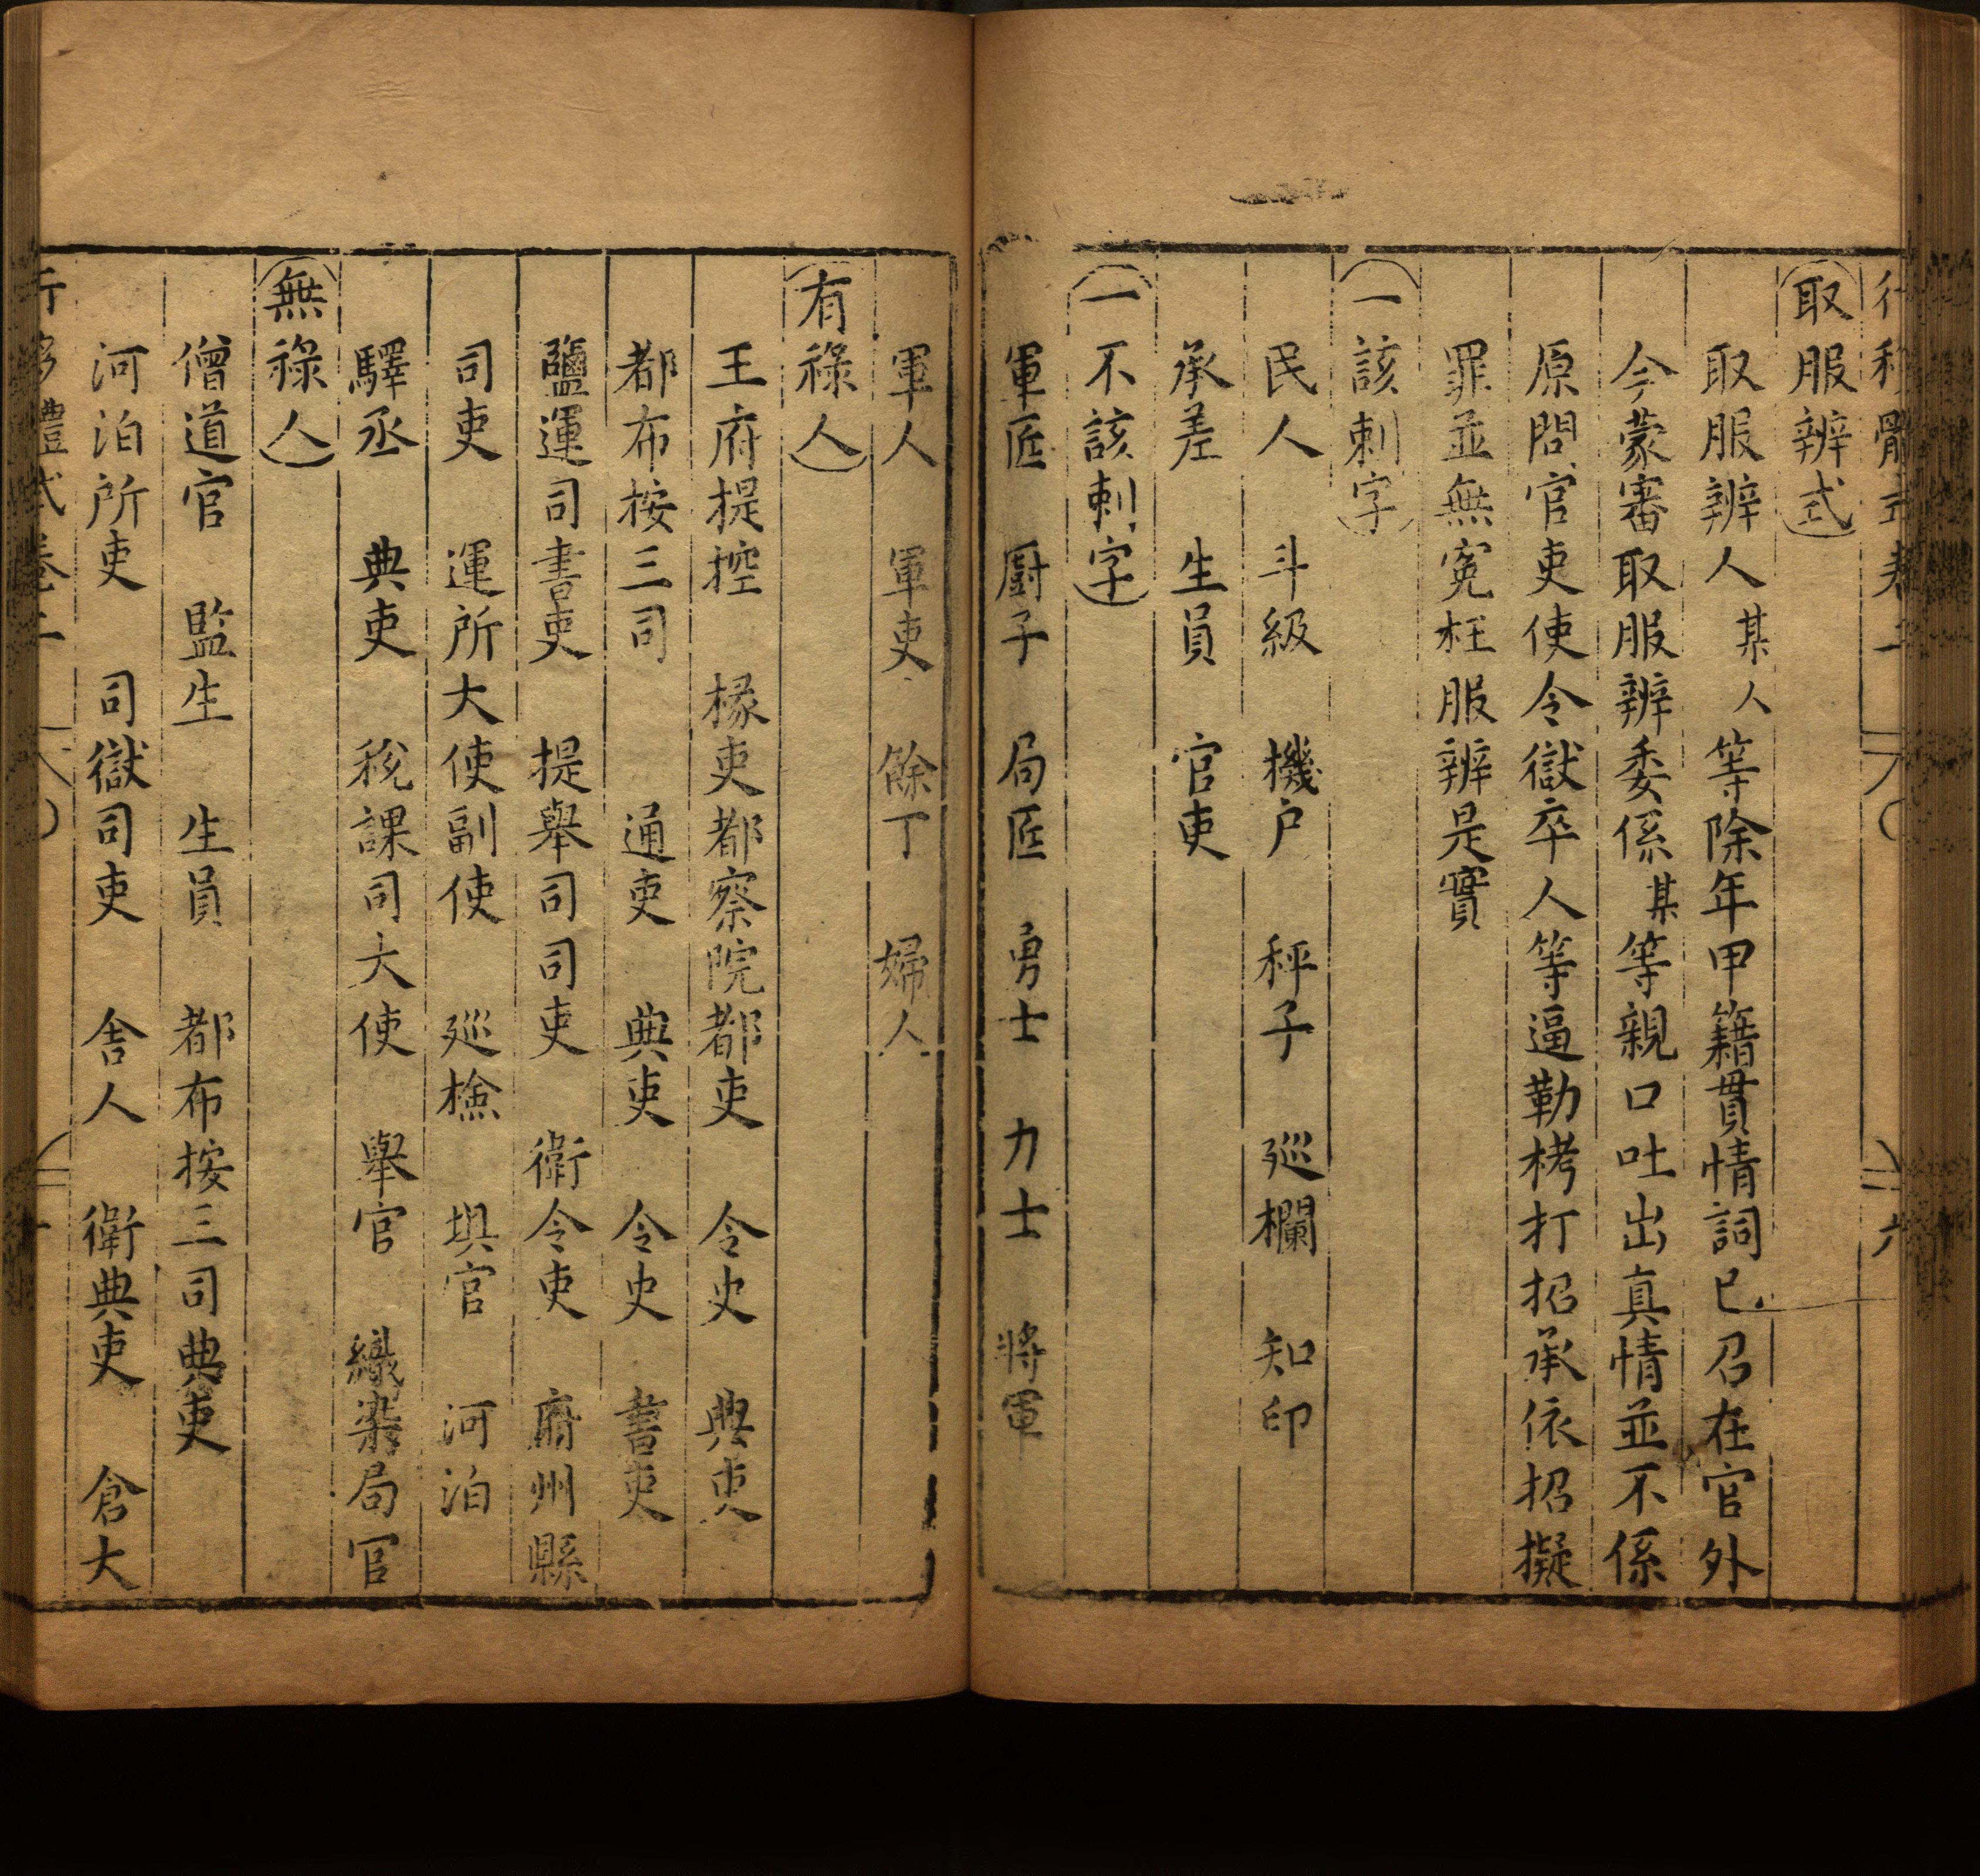 取服辨式
取服辨人某人等除年甲籍貫情詞已召在官外
今蒙審取服辨委係某等親口吐出真情並不係
原問官吏使令獄卒人等逼勒拷打招承依招擬
罪並無寃枉服辨是實
一該刺字
民人 斗級 機戶 秤子 廵欄 知印
承差 生員 官吏
一不該刺字
軍匠 厨子 局匠 勇士 力士 將軍
軍人 軍吏 餘丁 婦人
有祿人
王府提控 椽吏 都察院都吏 令史 典吏
都布按三司 通吏 典吏 令史 書吏
鹽運司書吏 提舉司司吏 衛令吏 府州縣
司吏 運所大使副使 廵檢 埧官 河泊
驛丞 典吏 稅課司大使 舉官 織染局官
無祿人
僧道官 監生 生員 都布按三司典吏
河泊所吏 司獄司吏 舍人 衛典吏 倉大